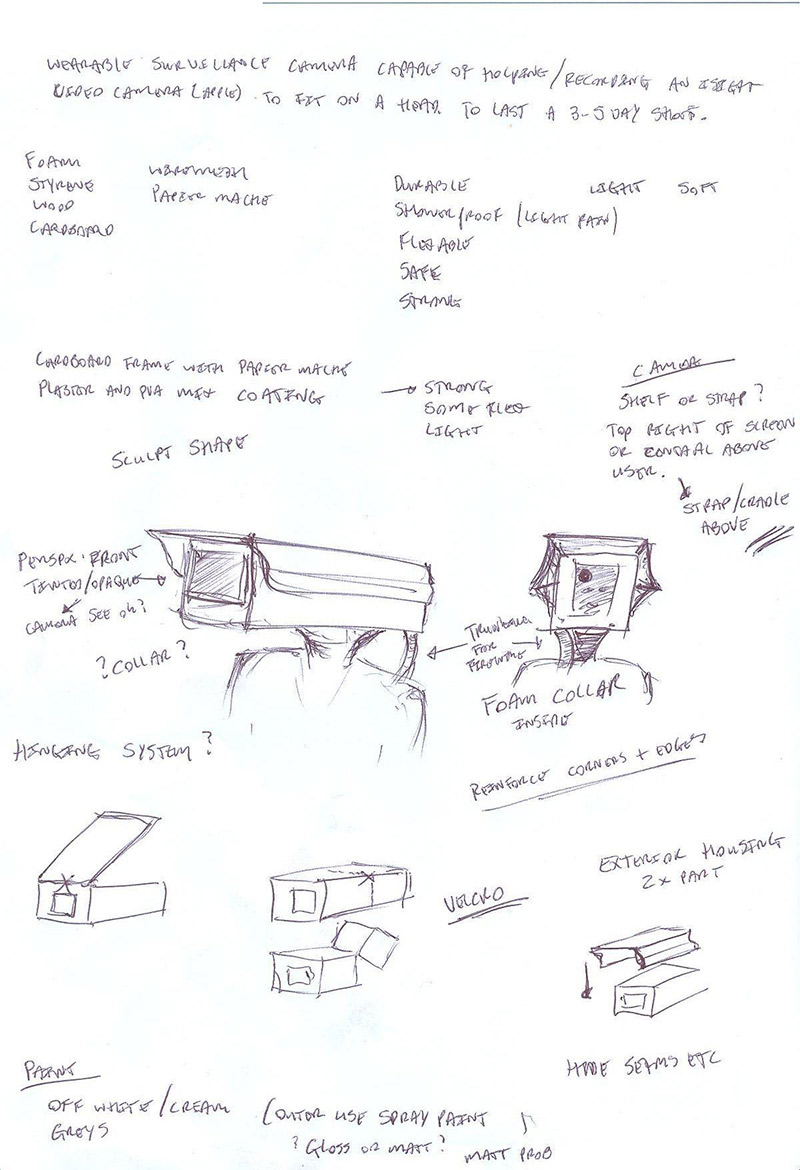 WEARABLE SURVEILLANCE CAMERA CAPABLE OF HOLDING/RECORDING AN ISIGHT
VIDEO CAMERA (APPLE) TO FIT ON A HEAD TO LAST A 3-5 DAY SHOOT.
FOAM
STYRENE
WOOD
CARDBOARD
WIREMESH
PAPIER MACHE
DURABLE
SHOWERPROOF (LIGHT RAIN)
FLEXABLE
SAFE
STRONG
LIGHT SOFT
CARDBOARD FRAME WITH PAPIER MACHE
PLASTER AND PVA MIX COATING
STRONG
SOME FLEX
LIGHT
SCULPT SHAPE
CAMERA
SHELF OR STRAP?
TOP RIGHT OF SCREEN
OR CENTRAL ABOVE
USER.
STRAP/CRADLE
ABOVE
PERSPEX FRONT
TINTED/OPAQUE
CAMERA SEE OK?
? COLLAR ?
FOR
FIREWIRE
FOAM COLLAR
INSIDE
HINGING SYSTEM?
REINFORCE CORNERS + EDGES
EXTERIOR HOUSING
2x PART
VELCRO
HIDE SEAMS ETC
PAINT
OFF WHITE/CREAM
GREYS
(OUTER USE SPRAY PAINT
? GLOSS OR MATT? MATT PROB